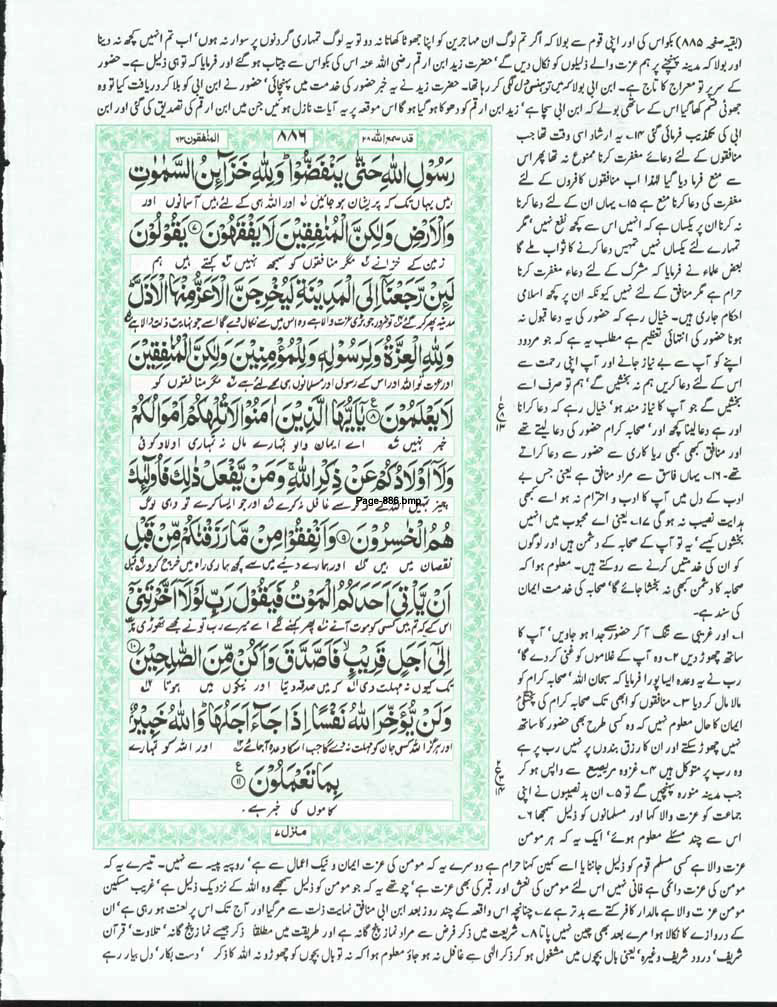 (بقیہ صفحہ ۸۸۵) بکواس کی اور اپنی قوم سے بولا کہ اگر تم لوگ ان مہاجرین کو اپنا جھوٹا کھانا نہ دو تو یہ لوگ تمہاری گردنوں پر سوار نہ ہوں' اب تم انہیں کچھ نہ دینا
اور بولا کہ مدینہ پہنچنے پر ہم عزت والے ذلیلوں کو نکال دیں گے' حضرت زید ابن ارقم رضی اللہ عنہ اس کی بکواس سے بیتاب ہو گئے اور فرمایا کہ تو ہی ذلیل ہے۔ حضور
کے سر پر تو معراج کا تاج ہے۔ ابن ابی بولا کہ میں تو ہنسی دل لگی کر رہا تھا۔ حضرت زید نے یہ خبر حضور کی خدمت میں پہنچائی' حضور نے ابن ابی کو بلا کر دریافت کیا تو وہ
جھوٹی قسم کھا گیا اس کے ساتھی بولے کہ ابن ابی سچا ہے' زید ابن ارقم کو دھوکا ہو گیا ہو گا اس موقعہ پر یہ آیات نازل ہوئیں جن میں ابن ارقم کی تصدیق کی گئی اور ابن
ابی کی تکذیب فرمائی گئی ۱۴۔ یہ ارشاد اسی وقت تھا جب
منافقوں کے لئے دعائے مغفرت کرنا ممنوع نہ تھا پھر اس
سے منع فرما دیا گیا لہٰذا اب منافقوں کافروں کے لئے
مغفرت کی دعا کرنا منع ہے ۱۵۔ یہاں ان کے لئے دعا کرنا
نہ کرنا ان پر یکساں ہے کہ انہیں اس سے کچھ نفع نہیں' مگر
تمہارے لئے یکساں نہیں تمہیں دعا کرنے کا ثواب ملے گا
بعض علماء نے فرمایا کہ مشرک کے لئے دعاء مغفرت کرنا
حرام ہے مگر منافق کے لئے نہیں کیونکہ ان پر کچھ اسلامی
احکام جاری ہیں۔ خیال رہے کہ حضور کی یہ دعا قبول نہ
ہونا حضور کی انتہائی تعظیم ہے مطلب یہ ہے کہ جو مردود
اپنے کو آپ سے بے نیاز جانے اور آپ اپنی رحمت سے
اس کے لئے دعا کریں ہم نہ بخشیں گے' ہم تو صرف اسے
بخشیں گے جو آپ کا نیاز مند ہو' خیال رہے کہ دعا کرانا
اور ہے دعا لینا کچھ اور' صحابہ کرام حضور کی دعا لیتے تھے
اور منافق کبھی کبھی ریا کاری سے حضور سے دعا کراتے
تھے۔ ۱۶۔ یہاں فاسق سے مراد منافق ہے یعنی جس بے
ادب کے دل میں آپ کا ادب و احترام نہ ہو اسے بھی
ہدایت نصیب نہ ہو گی ۱۷۔ یعنی اے محبوب میں انہیں
بخشوں کیسے' یہ تو آپ کے صحابہ کے دشمن ہیں اور لوگوں
کو ان کی خدمتیں کرنے سے روکتے ہیں۔ معلوم ہوا کہ
صحابہ کا دشمن کبھی نہ بخشا جائے گا' صحابہ کی خدمت ایمان
کی سند ہے۔
۱۔ اور غریبی سے تنگ آ کر حضور سے جدا ہو جاویں' آپ کا
ساتھ چھوڑ دیں ۲۔ وہ آپ کے غلاموں کو غنی کر دے گا'
رب نے یہ وعدہ ایسا پورا فرمایا کہ سبحان اللہ' صحابہ کرام کو
مالا مال کر دیا ۳۔ منافقوں کو ابھی تک صحابہ کرام کی پختگی
ایمان کا حال معلوم نہیں کہ وہ کسی طرح بھی حضور کا ساتھ
نہیں چھوڑ سکتے اور ان کا رزق بندوں پر نہیں رب پر ہے
وہ رب پر متوکل ہیں ۴۔ غزوہ مریسیع سے واپس ہو کر
جب مدینہ منورہ پہنچیں گے تو ۵۔ ان بدنصیبوں نے اپنی
جماعت کو عزت والا کہا اور مسلمانوں کو ذلیل سمجھا ۶۔
اس سے چند مسئلے معلوم ہوئے' ایک یہ کہ ہر مومن
قد سمع اللہ ۲۸ ۸۸۶ المنٰفقون ۶۳
رَسُوۡلِ اللّٰهِ حَتّٰى يَنۡفَضُّوۡا ؕ وَلِلّٰهِ خَزَآئِنُ السَّمٰوٰتِ
ہیں یہاں تک کہ پریشان ہو جائیں ۱ اور اللہ ہی کے لئے ہیں آسمانوں اور
وَالۡاَرۡضِ وَلٰكِنَّ الۡمُنٰفِقِيۡنَ لَا يَفۡقَهُوۡنَ ۝۷ يَقُوۡلُوۡنَ
زمین کے خزانے ۲ مگر منافقوں کو سمجھ نہیں ۳ کہتے ہیں ہم
لَئِنۡ رَّجَعۡنَاۤ اِلَى الۡمَدِيۡنَةِ لَيُخۡرِجَنَّ الۡاَعَزُّ مِنۡهَا الۡاَذَلَّ ؕ
مدینہ پھر کر گئے ۴ تو ضرور جو بڑی عزت والا ہے وہ اس میں سے نکال دے گا اسے جو نہایت ذلت والا ہے ۵
وَلِلّٰهِ الۡعِزَّةُ وَلِرَسُوۡلِهٖ وَلِلۡمُؤۡمِنِيۡنَ وَلٰكِنَّ الۡمُنٰفِقِيۡنَ
اور عزت تو اللہ اور اس کے رسول اور مسلمانوں ہی کے لئے ہے ۶ مگر منافقوں کو
لَا يَعۡلَمُوۡنَ ۝۸ يٰۤاَيُّهَا الَّذِيۡنَ اٰمَنُوۡا لَا تُلۡهِكُمۡ اَمۡوَالُكُمۡ
خبر نہیں ۷ اے ایمان والو تمہارے مال نہ تمہاری اولاد کوئی
وَلَاۤ اَوۡلَادُكُمۡ عَنۡ ذِكۡرِ اللّٰهِ ۚ وَمَنۡ يَّفۡعَلۡ ذٰلِكَ فَاُولٰٓئِكَ
چیز تمہیں اللہ کے ذکر سے غافل نہ کرے ۸ اور جو ایسا کرے تو وہی لوگ
Page-886.bmp
هُمُ الۡخٰسِرُوۡنَ ۝۹ وَاَنۡفِقُوۡا مِنۡ مَّا رَزَقۡنٰكُمۡ مِّنۡ قَبۡلِ
نقصان میں ہیں اور ہمارے دیئے میں سے کچھ ہماری راہ میں خرچ کرو قبل
اَنۡ يَّاۡتِىَ اَحَدَكُمُ الۡمَوۡتُ فَيَقُوۡلَ رَبِّ لَوۡلَاۤ اَخَّرۡتَنِىۡۤ
اس کے کہ تم میں کسی کو موت آئے پھر کہنے لگے اے میرے رب تو نے مجھے تھوڑی مدت
اِلٰٓى اَجَلٍ قَرِيۡبٍ ۙ فَاَصَّدَّقَ وَاَكُنۡ مِّنَ الصّٰلِحِيۡنَ ۝۱۰
تک کیوں نہ مہلت دی کہ میں صدقہ دیتا اور نیکوں میں ہوتا
وَلَنۡ يُّؤَخِّرَ اللّٰهُ نَفۡسًا اِذَا جَآءَ اَجَلُهَا ؕ وَاللّٰهُ خَبِيۡرٌۢ
اور ہرگز اللہ کسی جان کو مہلت نہ دے گا جب اس کا وعدہ آ جائے اور اللہ کو تمہارے
بِمَا تَعۡمَلُوۡنَ ۝۱۱
کاموں کی خبر ہے۔
منزل ۷
عزت والا ہے کسی مسلم قوم کو ذلیل جاننا یا اسے کمین کہنا حرام ہے دوسرے یہ کہ مومن کی عزت ایمان و نیک اعمال سے ہے' روپیہ پیسہ سے نہیں۔ تیسرے یہ کہ
مومن کی عزت دائمی ہے فانی نہیں اس لئے مومن کی نعش اور قبر کی بھی عزت ہے' چوتھے یہ کہ جو مومن کو ذلیل سمجھے وہ اللہ کے نزدیک ذلیل ہے' غریب مسکین
مومن عزت والا ہے مالدار کافر کتے سے بدتر ہے ۷۔ چنانچہ اس واقعہ کے چند روز بعد ابن ابی منافق نہایت ذلت سے مر گیا اور آج تک اس پر لعنت ہو رہی ہے' ان
کے دروازے کا نکالا ہوا مرے بعد بھی چین نہیں پاتا ۸۔ شریعت میں ذکر فرض سے مراد نماز پنج گانہ ہے اور طریقت میں مطلقاً ذکر جیسے نماز پنج گانہ' تلاوت' قرآن
شریف' درود شریف وغیرہ' یعنی بال بچوں میں مشغول ہو کر ذکر الٰہی سے غافل نہ ہو جاؤ معلوم ہوا کہ نہ تو بال بچوں کو چھوڑو نہ اللہ کا ذکر' دست بکار' دل بیار رہے